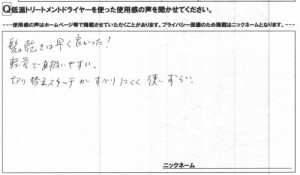 Q低温トリートメントドライヤーを使った使用感の声を聞かせてください。
---使用感の声はホームページ等で掲載させていただくことがあります。プライバシー保護のため掲載はニックネームとなります。---
髪の乾きは早く良かった!
軽量で取扱いやすい。
切り替えスイッチがすべりにくく使いずらい。
ニックネーム